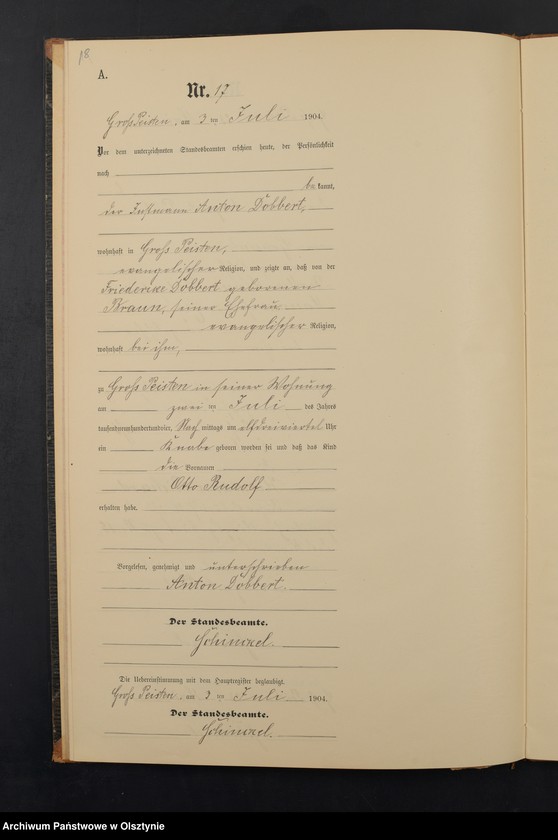 18
A.
Nr. 17
Groß Peisten, am 3 ten Juli 1904.
Vor dem unterzeichneten Standesbeamten erschien heute, der Persönlichkeit
nach
be kannt,
der Instmann Anton Dobbert,
wohnhaft in Groß Peisten,
evangelischer Religion, und zeigte an, daß von der
Friederike Dobbert geborenen
Braun, seiner Ehefrau
evangelischer Religion,
wohnhaft bei ihm,
zu Groß Peisten in seiner Wohnung
am zwei ten Juli des Jahres
tausendneunhundertundvier, Nach mittags um elfdreiviertel Uhr
ein Knabe geboren worden sei und daß das Kind
die Vornamen
Otto Rudolf
erhalten habe.
Vorgelesen, genehmigt und unterschrieben
Anton Dobbert.
Der Standesbeamte.
Schinckel.
Die Uebereinstimmung mit dem Hauptregister beglaubigt.
Groß Peisten, am 3 ten Juli 1904.
Der Standesbeamte.
Schinckel.
Archiwum Państwowe w Olsztynie